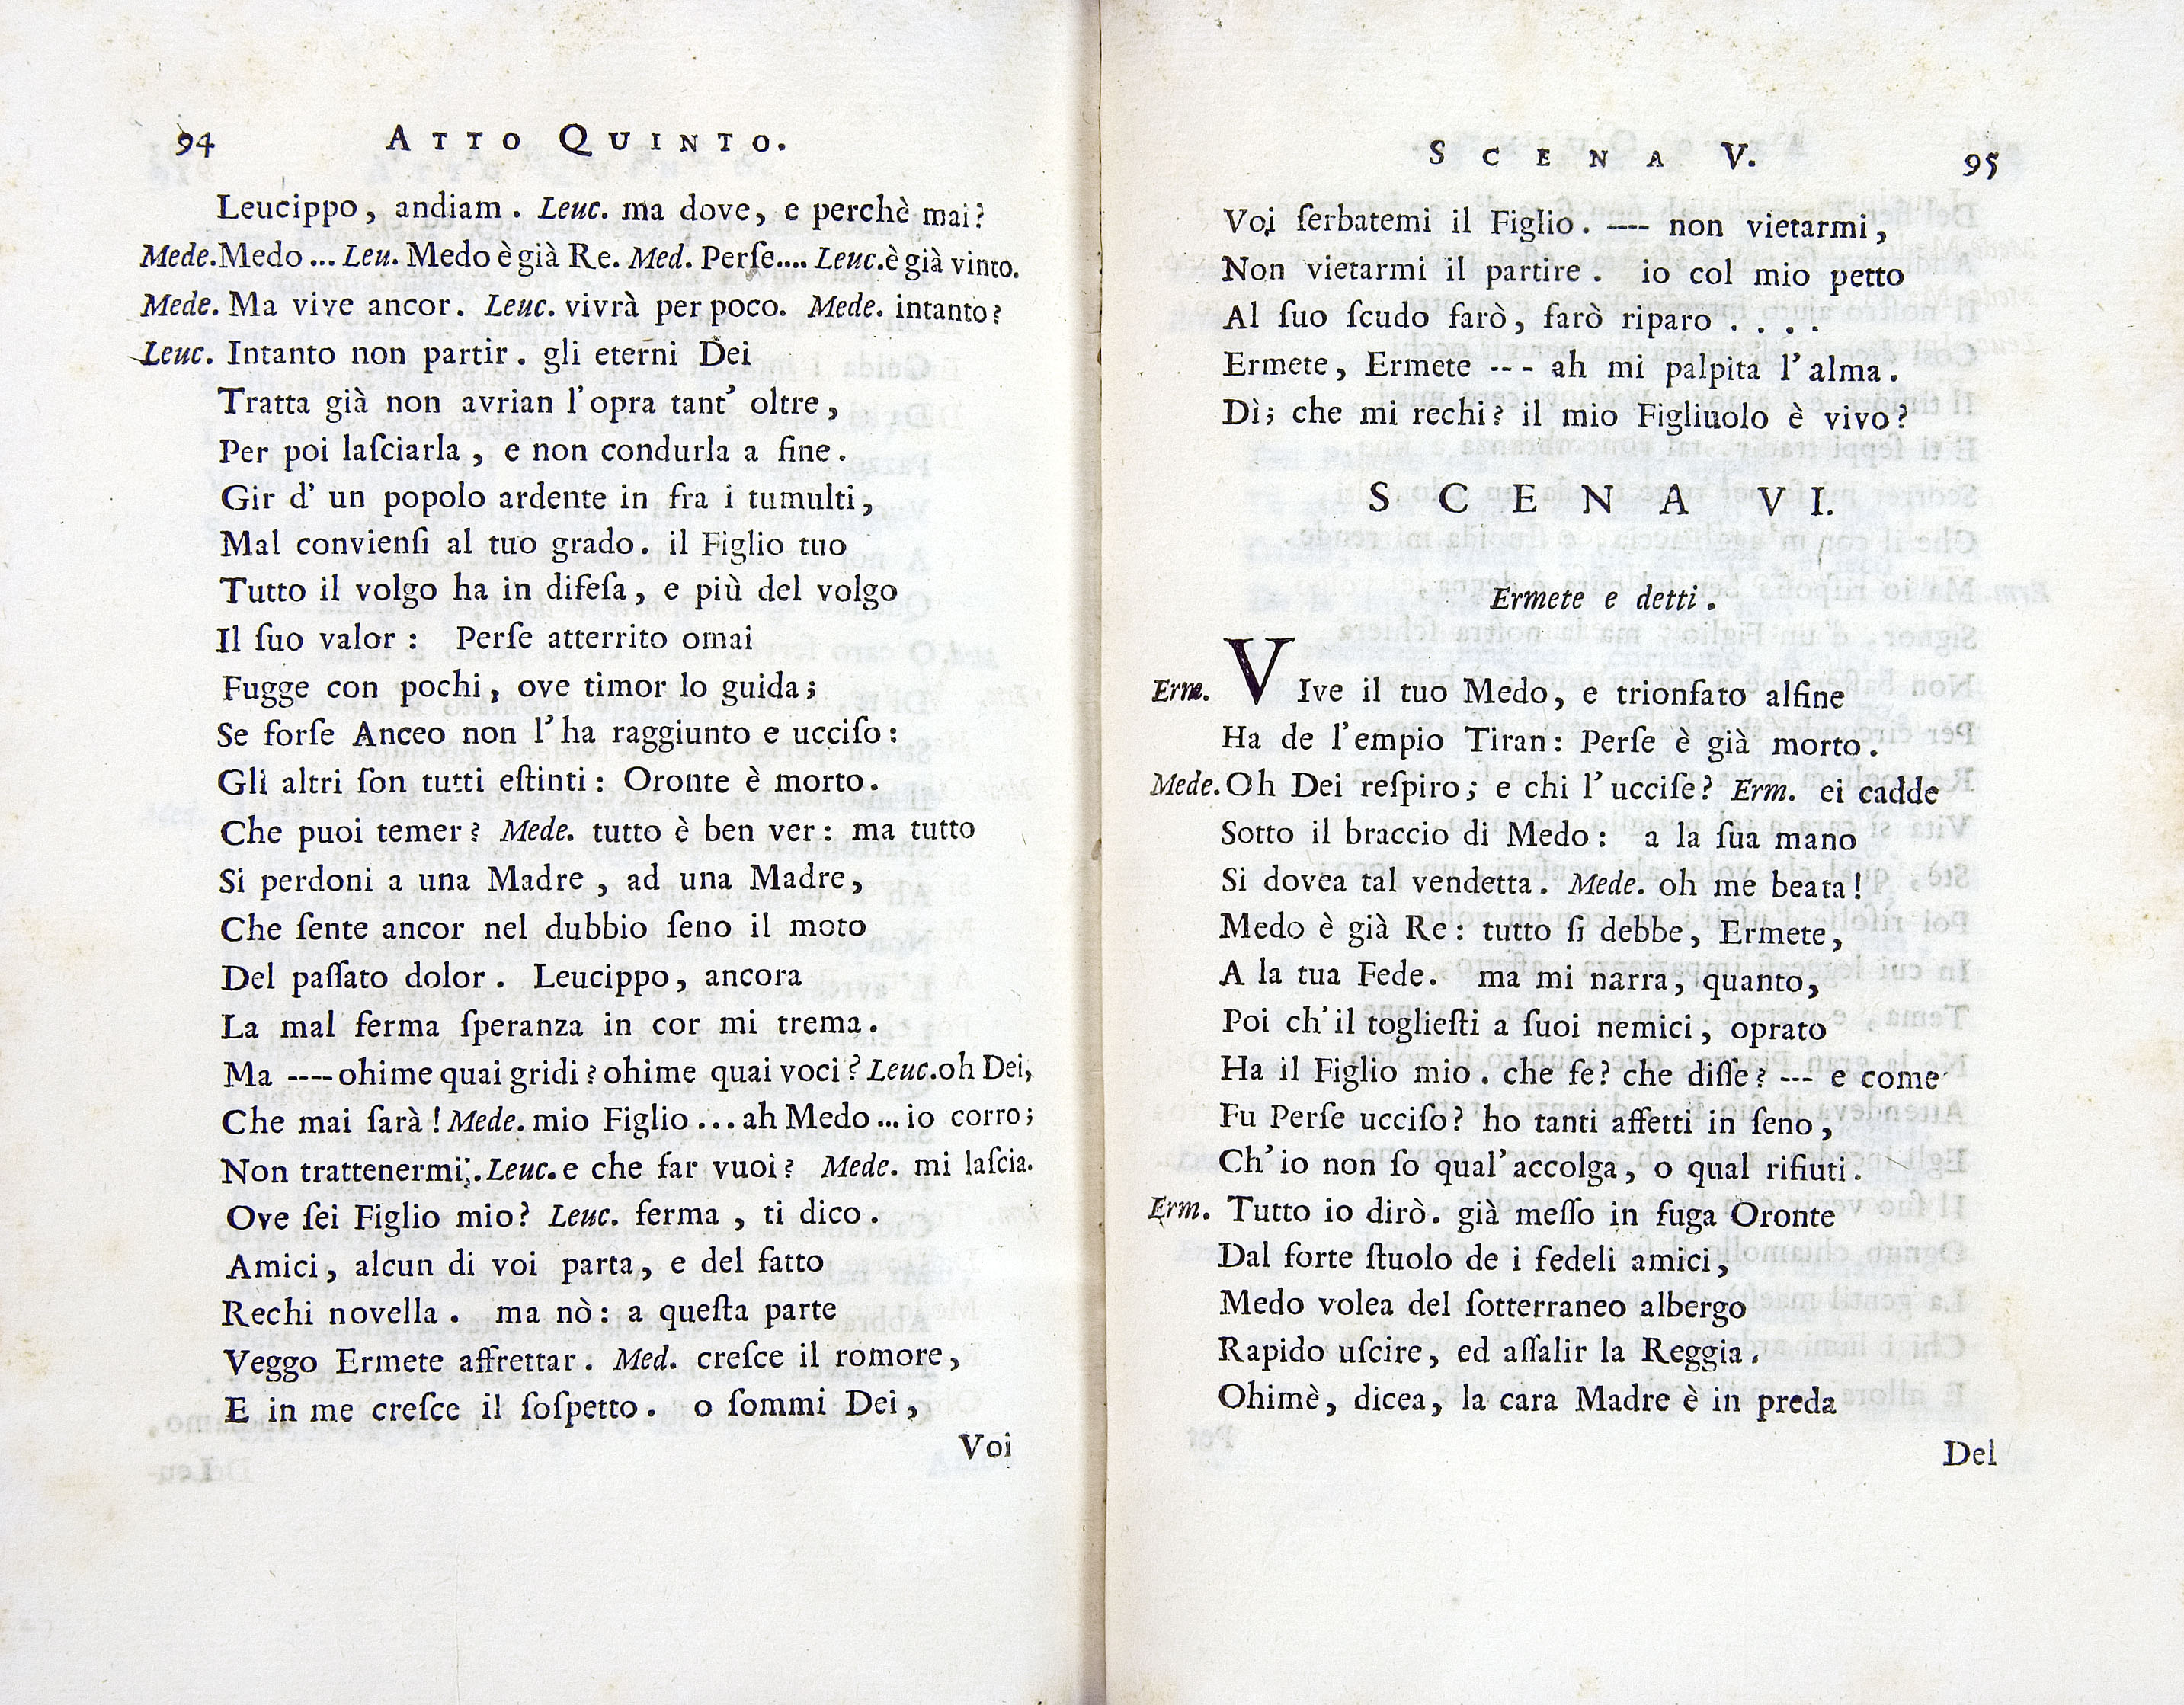 94 ATTO QUINTO.
Leucippo, andiam. Leuc. ma dove, e perchè mai?
Mede. Medo... Leu. Medo è già Re. Med. Perſe.... Leuc. è già vinto.
Mede. Ma vive ancor. Leuc. vivrà per poco. Mede. intanto?
Leuc. Intanto non partir. gli eterni Dei
Tratta già non avrian l'opra tant' oltre,
Per poi laſciarla, e non condurla a fine.
Gir d' un popolo ardente in fra i tumulti,
Mal convienſi al tuo grado. il Figlio tuo
Tutto il volgo ha in difeſa, e più del volgo
Il ſuo valor: Perſe atterrito omai
Fugge con pochi, ove timor lo guida;
Se forſe Anceo non l'ha raggiunto e ucciſo:
Gli altri ſon tutti eſtinti: Oronte è morto.
Che puoi temer? Mede. tutto è ben ver: ma tutto
Si perdoni a una Madre, ad una Madre,
Che ſente ancor nel dubbio ſeno il moto
Del paſſato dolor. Leucippo, ancora
La mal ferma ſperanza in cor mi trema.
Ma ---- ohime quai gridi? ohime quai voci? Leuc. oh Dei,
Che mai ſarà! Mede. mio Figlio... ah Medo... io corro;
Non trattenermi;. Leuc. e che far vuoi? Mede. mi laſcia.
Ove ſei Figlio mio? Leuc. ferma, ti dico.
Amici, alcun di voi parta, e del fatto
Rechi novella. ma nò: a queſta parte
Veggo Ermete affrettar. Med. creſce il romore,
E in me creſce il ſoſpetto. o ſommi Dei,
Voi
SCENA V. 95
Voi ſerbatemi il Figlio. ---- non vietarmi,
Non vietarmi il partire. io col mio petto
Al ſuo ſcudo farò, farò riparo....
Ermete, Ermete --- ah mi palpita l'alma.
Dì; che mi rechi? il mio Figliuolo è vivo?
SCENA VI.
Ermete e detti.
Erm. VIve il tuo Medo, e trionfato alfine
Ha de l'empio Tiran: Perſe è già morto.
Mede. Oh Dei reſpiro; e chi l'ucciſe? Erm. ei cadde
Sotto il braccio di Medo: a la ſua mano
Si dovea tal vendetta. Mede. oh me beata!
Medo è già Re: tutto ſi debbe, Ermete,
A la tua Fede. ma mi narra, quanto,
Poi ch'il toglieſti a ſuoi nemici, oprato
Ha il Figlio mio. che fe? che diſſe? --- e come
Fu Perſe ucciſo? ho tanti affetti in ſeno,
Ch'io non ſo qual'accolga, o qual rifiuti.
Erm. Tutto io dirò. già meſſo in fuga Oronte
Dal forte ſtuolo de i fedeli amici,
Medo volea del ſotterraneo albergo
Rapido uſcire, ed aſſalir la Reggia.
Ohimè, dicea, la cara Madre è in preda
Del